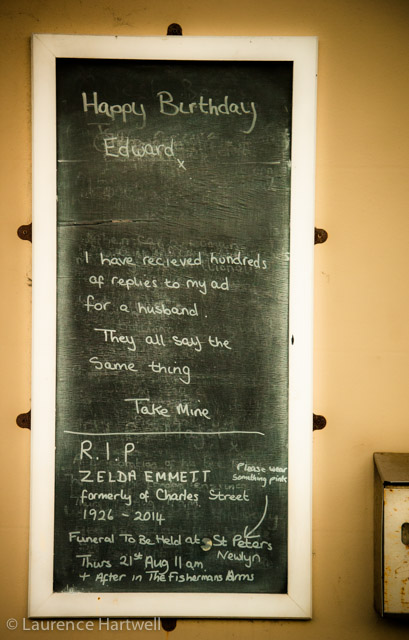 Happy Birthday
Edward
x
I have recieved hundreds
of replies to my ad
for a husband.
They all say the
Same thing
Take Mine
R.I.P
ZELDA EMMETT
formerly of Charles Street
1926 - 2014
Please wear
something pink
Funeral To Be Held at St Peters
Newlyn
Thurs 21st Aug 11 am
+ After in The Fishermans Arms
© Laurence Hartwell